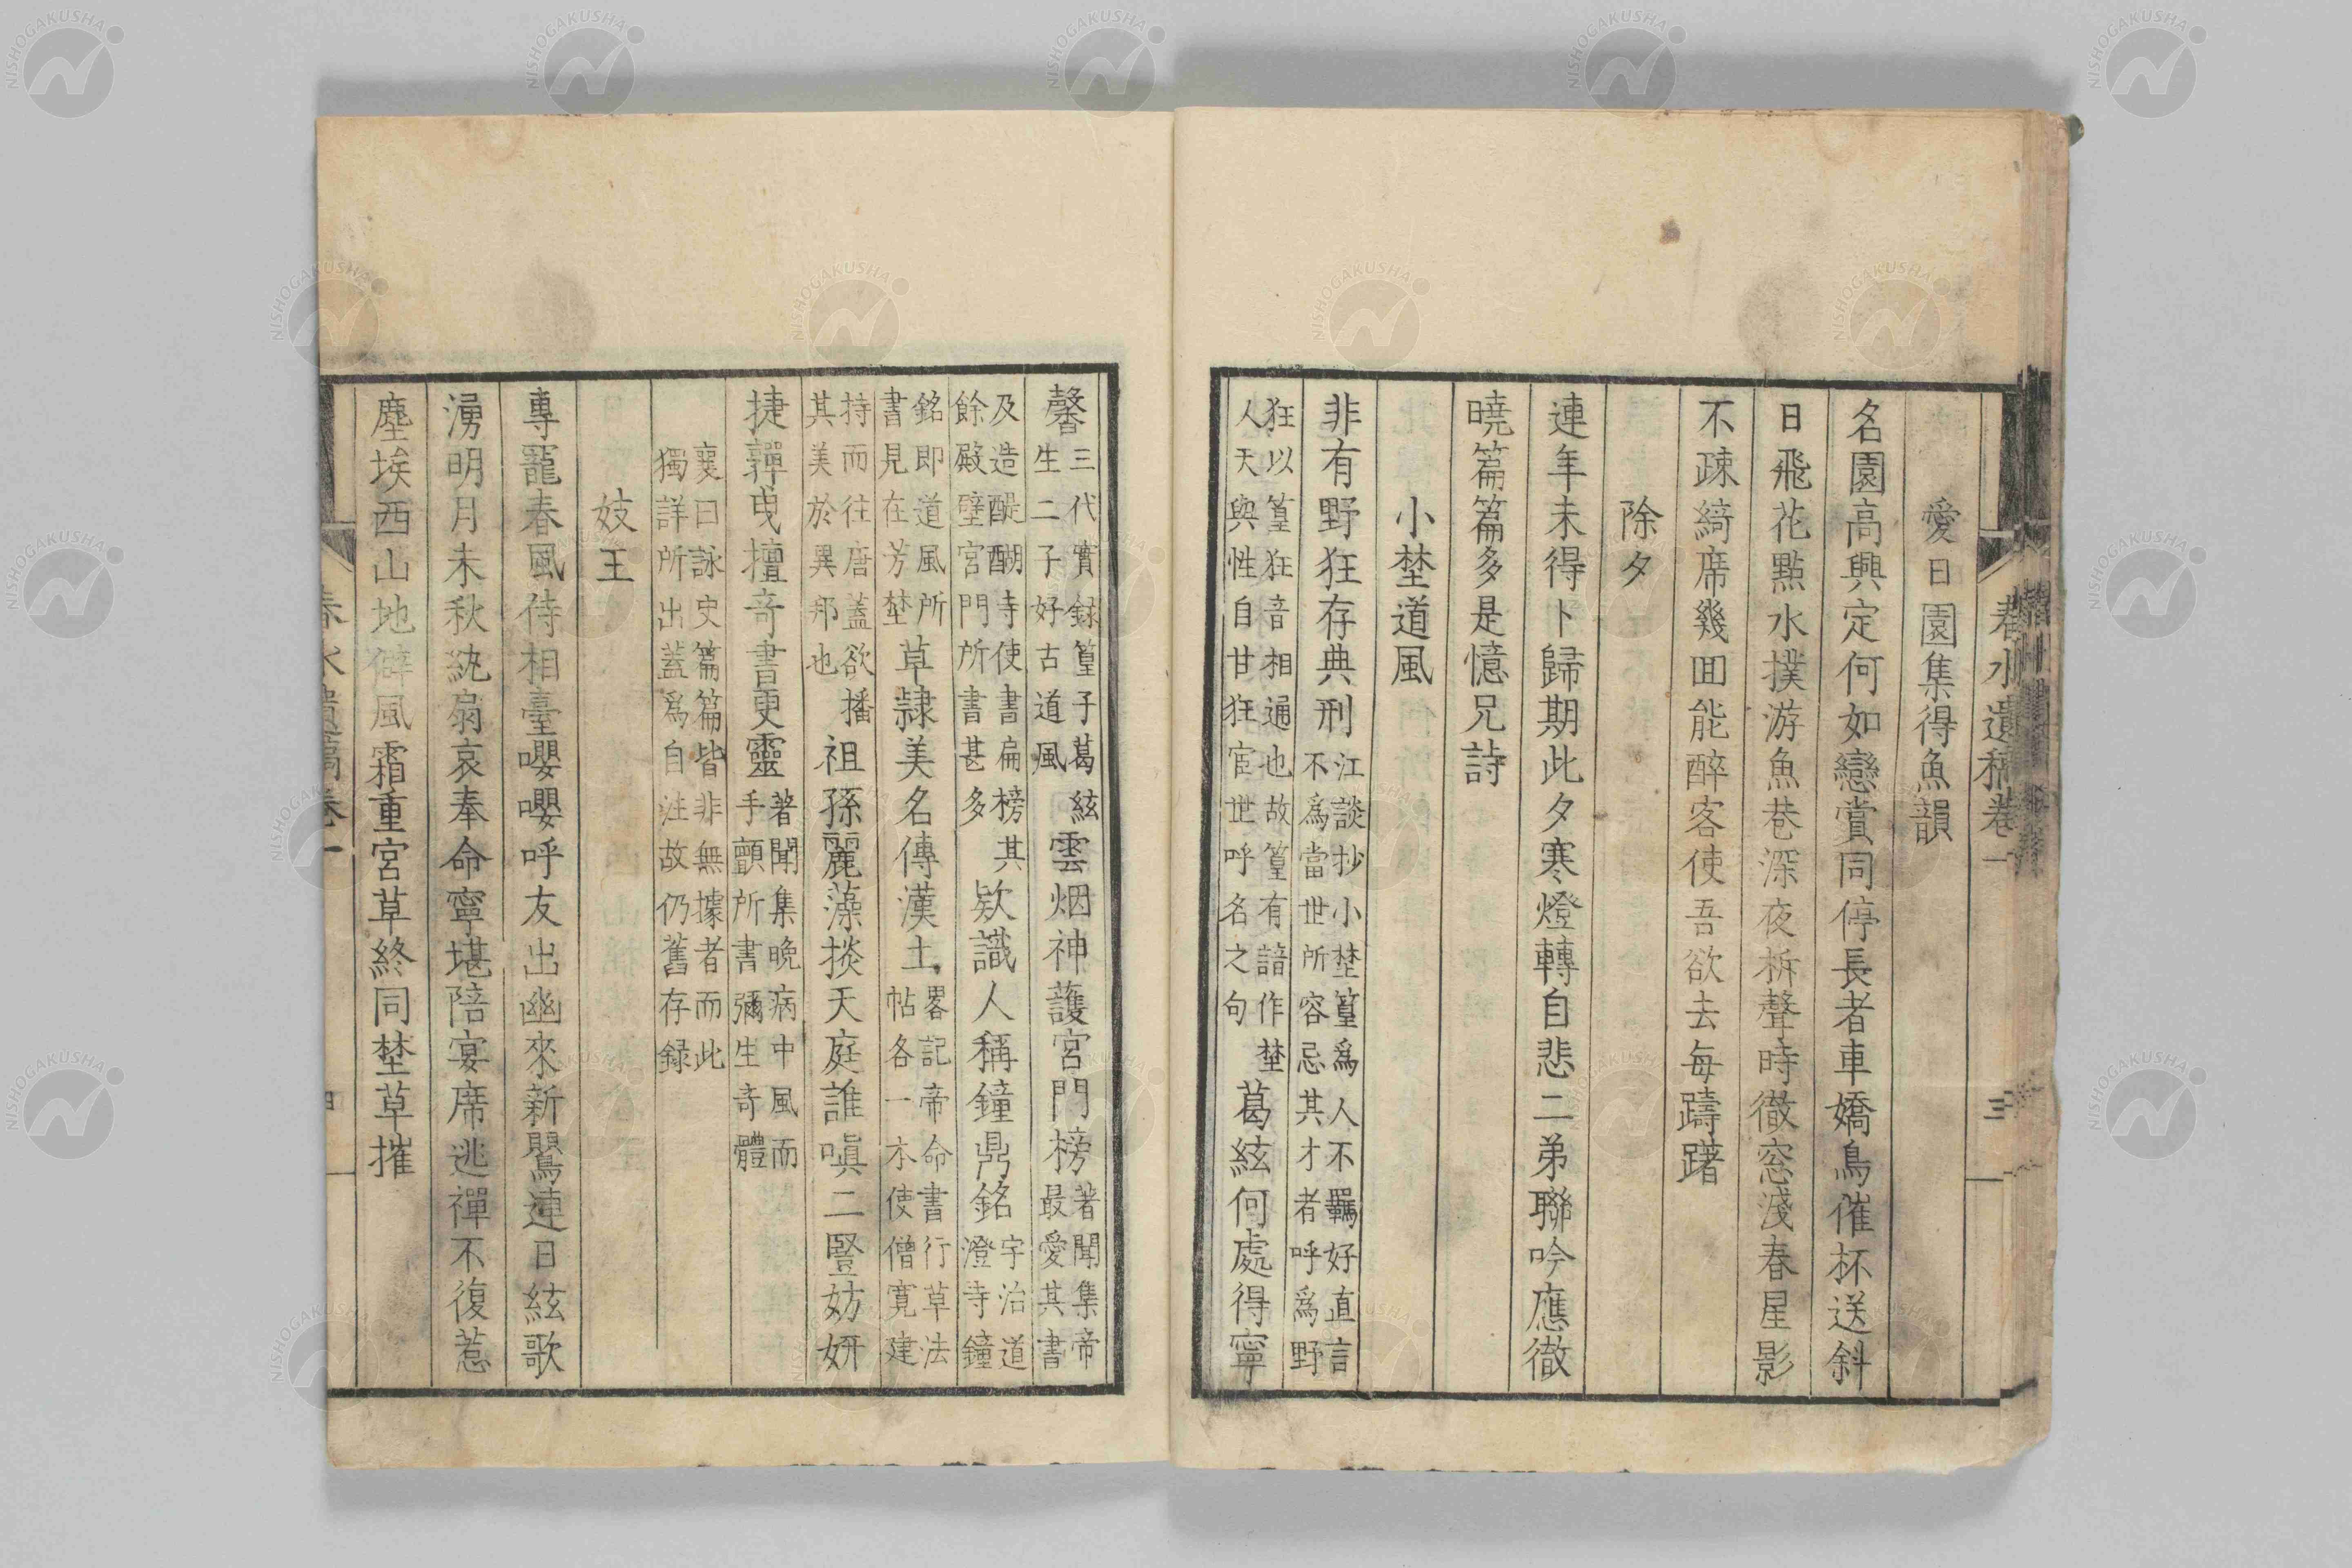 愛日園集得魚韻
名園高興定何如戀賞同停長者車嬌鳥催杯送斜
日飛花點水撲游魚巷深夜柝聲時徹窓淺春星影
不疎綺席幾回能醉客使吾欲去每躊躇
除夕
連年未得卜歸期此夕寒燈轉自悲二弟聯吟應徹
曉篇篇多是憶兄詩
小埜道風
非有野狂存典刑
江談抄小埜篁爲人不羈好直言
不爲當世所容忌其才者呼爲野
狂以篁狂音相通也故篁有諳作埜
人天與性自甘狂宦世呼名之句
葛絃何處得寧
馨
三代實録篁子葛絃
生二子好古道風
雲烟神護宮門榜
著聞集帝
最愛其書
及造醍醐寺使書扁榜其
餘殿壁宮門所書甚多
欵識人稱鐘鼎銘
宇治道
澄寺鐘
銘即道風所
書見在芳埜
草隷美名傳漢土
畧記帝命書行草法
帖各一本使僧寛建
持而往唐蓋欲播
其美於異邦也
祖孫麗藻掞天庭誰嗔二豎妨妍
捷嚲曳擅奇書更靈
著聞集晩病中風而
手顫所書彌生奇體
襄曰詠史篇篇皆非無據者而此
獨詳所出蓋爲自注故仍舊存録
妓王
專寵春風侍相臺嚶嚶呼友出幽來新鸎連日絃歌
湧明月未秋紈扇哀奉命寧堪陪宴席逃禪不復惹
塵埃西山地僻風霜重宮草終同埜草摧
春水遺稿卷一
三
春水遺稿卷一
NISHOGAKUSHA